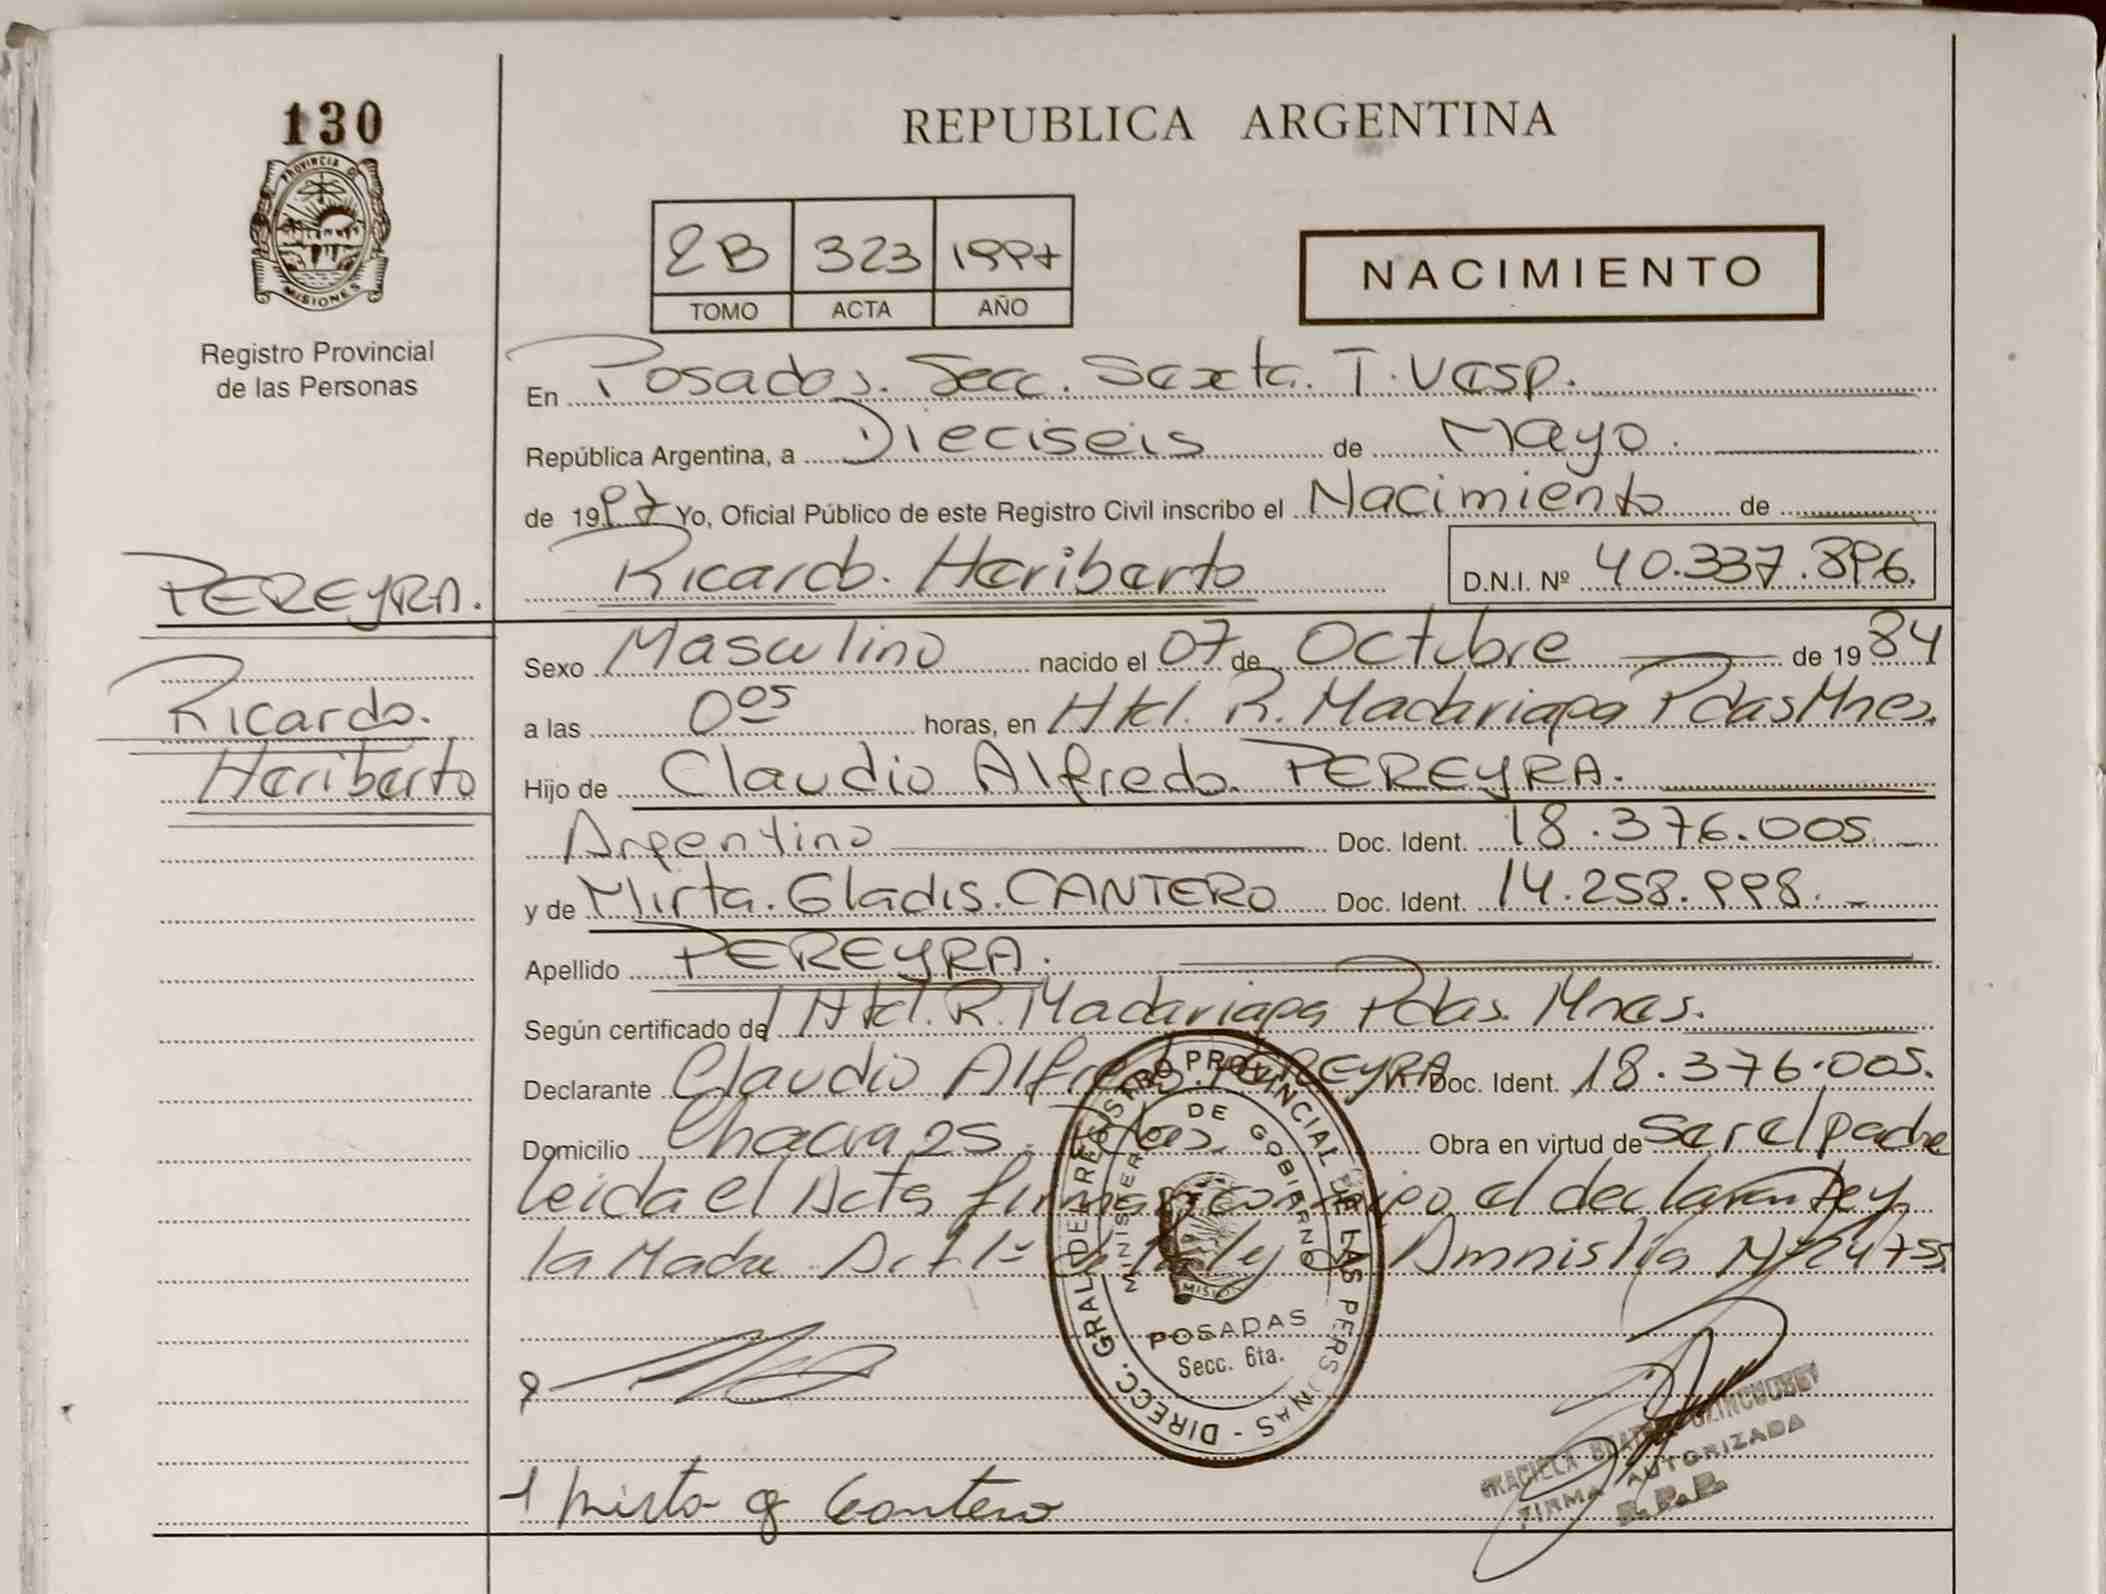 130
PROVINCIA DE
MISIONES
Registro Provincial
de las Personas
REPUBLICA ARGENTINA
2B 323 1997
TOMO ACTA AÑO
NACIMIENTO
En Posadas. Secc. Sexta. T. Vesp.
República Argentina, a Dieciseis de Mayo.
de 1997 Yo, Oficial Público de este Registro Civil inscribo el Nacimiento de
Ricardo. Heriberto D.N.I. Nº 40.337.896.
PEREYRA.
Ricardo.
Heriberto
Sexo Masculino nacido el 07 de Octubre de 1984
a las 0 05 horas, en Htel. R. Madariaga Pdas Mnes.
Hijo de Claudio Alfredo. PEREYRA.
Argentino Doc. Ident. 18.376.005.
y de Mirta. Gladis. CANTERO Doc. Ident. 14.258.998.
Apellido PEREYRA.
Según certificado del Htel. R. Madariaga Pdas. Mnes.
Declarante Claudio Alfredo. PEREYRA Doc. Ident. 18.376.005.
Domicilio Chacra 25. Pdas. Obra en virtud de ser el padre
leida el Acta firman conmigo el declarante y
la Madre Art 1º de la ley de Amnistia Nº 24755
DIRECC. GRAL. DE REGISTRO PROVINCIAL DE LAS PERSONAS
MINISTERIO DE GOBIERNO
MISIONES
POSADAS
Secc. 6ta.
GRACIELA
FIRMA AUTORIZADA
R.P.P.
Mirta g Cantero